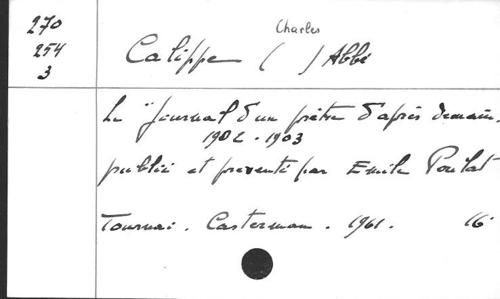 270
254
3
Charles
Calippe ( ) Abbé
Le "Journal d'un prêtre d'après demain.
1902 - 1903
publié et présenté par Emile Poulat
Tournai . Casterman . 1961 . 16°